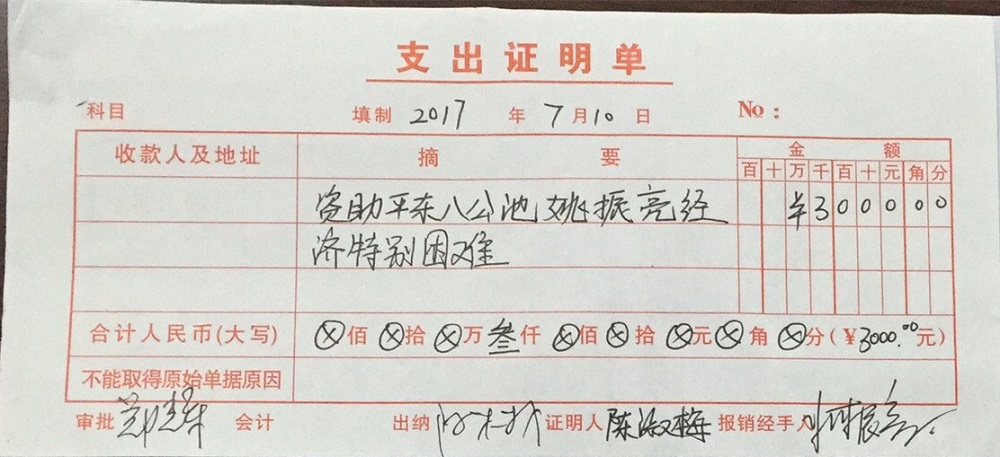 支出证明单
科目 填制 2017 年 7 月 10 日 No：
收款人及地址 摘 要 金 额
百 十 万 千 百 十 元 角 分
资助平东八公池姚振亮经 ¥3000 00
济特别困难
合计人民币(大写) ⊗佰 ⊗拾 ⊗万 叁仟 ⊗佰 ⊗拾 ⊗元 ⊗角 ⊗分(¥3000.00元)
不能取得原始单据原因
审批 会计 出纳 证明人 陈淑梅 报销经手人